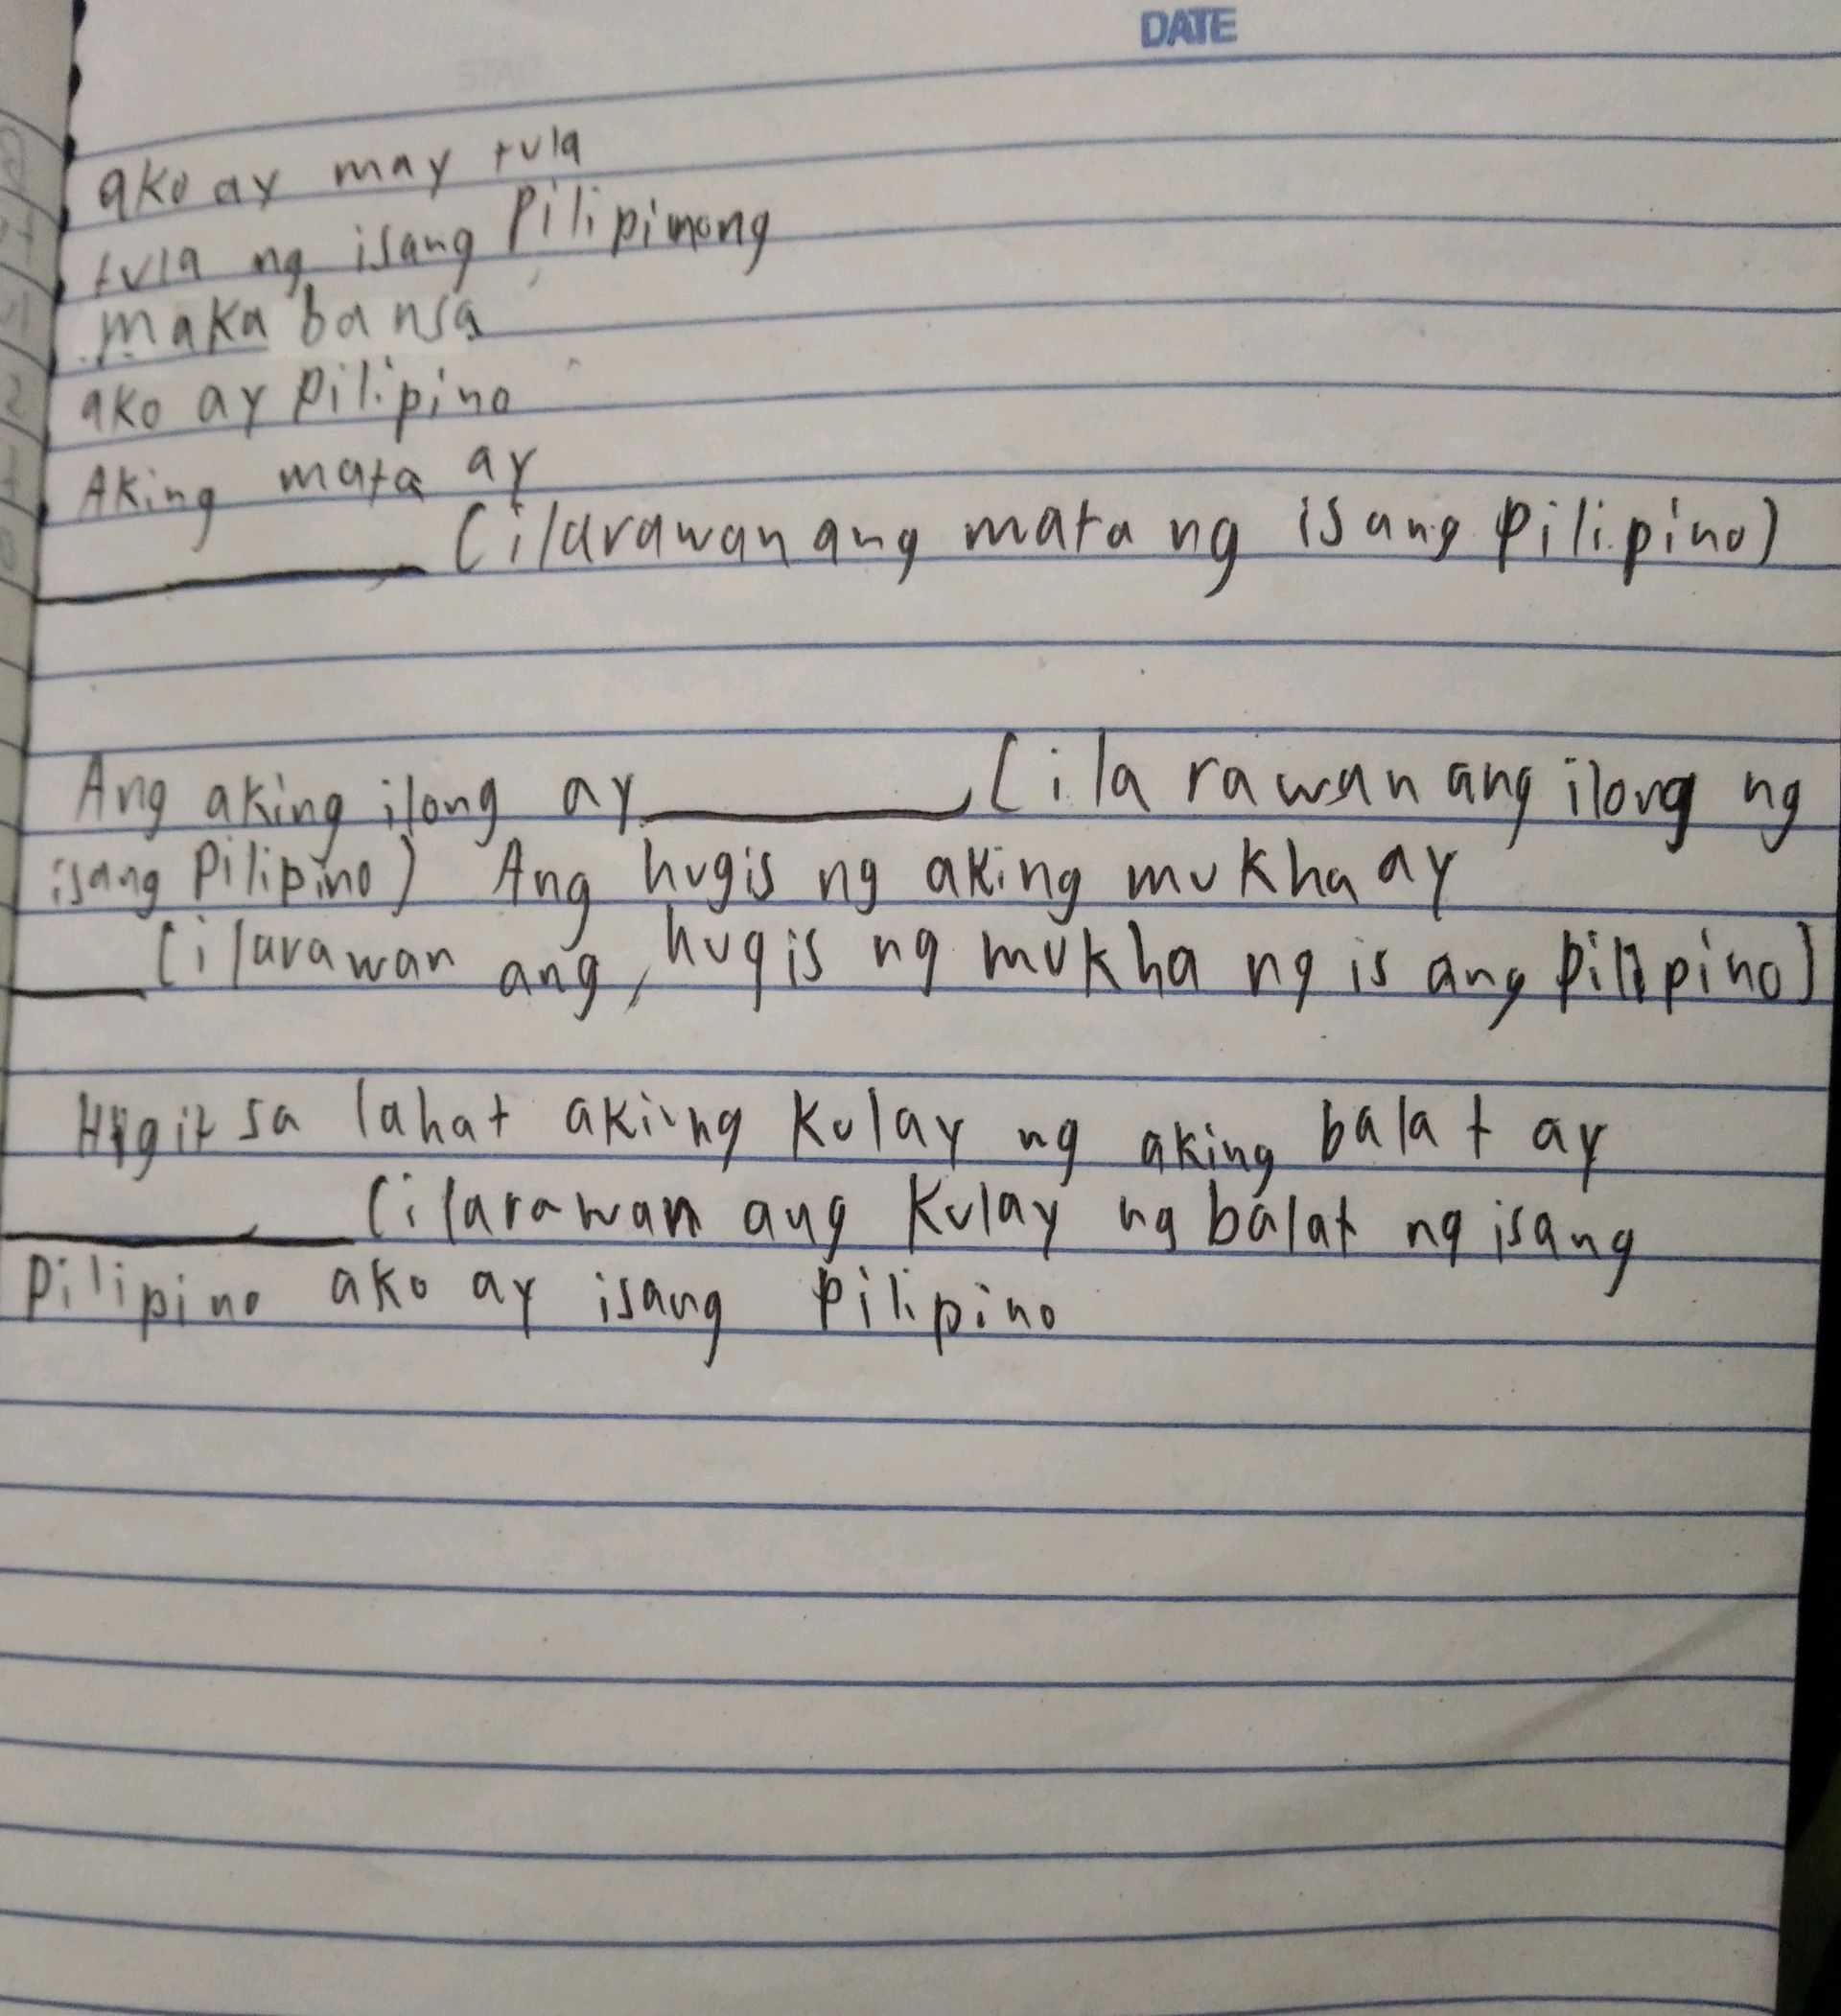 DATE
ako ay may tula
tula ng isang Pilipinong
maka bansa
ako ay pilipino
Aking mata ay
__________ (ilarawan ang mata ng isang pilipino)
Ang aking ilong ay ________ (ila rawan ang ilong ng
isang Pilipino) Ang hugis ng aking mukha ay
____ (ilarawan ang, hugis ng mukha ng is ang pilipino)
Higit sa lahat aking kulay ng aking balat ay
_________ (ilarawan ang kulay ng balat ng isang
pilipino ako ay isang pilipino